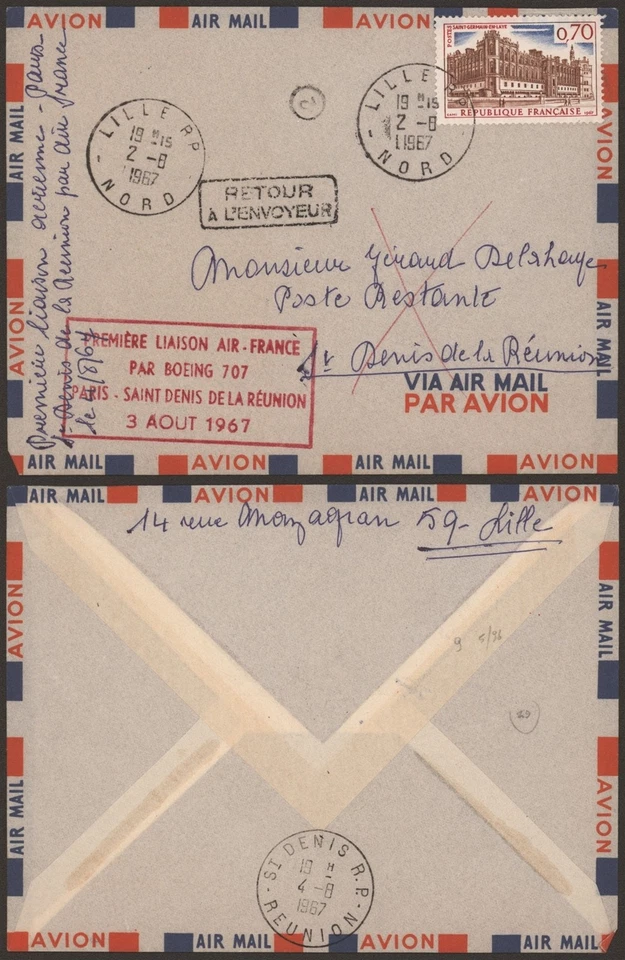 AVION AIR MAIL AVION AIR MAIL
POSTES SAINT-GERMAIN-EN-LAYE
0,70
RÉPUBLIQUE FRANÇAISE
1967
LILLE R.P.
19 H 15
2 - 8
1967
NORD
LILLE
19 H 15
2 - 8
1967
NORD
RETOUR
À L'ENVOYEUR
Monsieur Géraud Delahaye
Poste Restante
St Denis de la Réunion
VIA AIR MAIL
PAR AVION
PREMIÈRE LIAISON AIR-FRANCE
PAR BOEING 707
PARIS - SAINT DENIS DE LA RÉUNION
3 AOUT 1967
Première liaison aérienne - Paris
St Denis de la Réunion par air france
AIR MAIL
AVION
AVION
AIR MAIL
AIR MAIL AVION AIR MAIL AVION
AIR MAIL AVION AIR MAIL AVION
14 rue Mazagran 59 - Lille
AVION
AIR MAIL
AIR MAIL
AVION
9 5/96
ST DENIS R.P.
19 H
4 - 8
1967
REUNION
AVION AIR MAIL AVION AIR MAIL